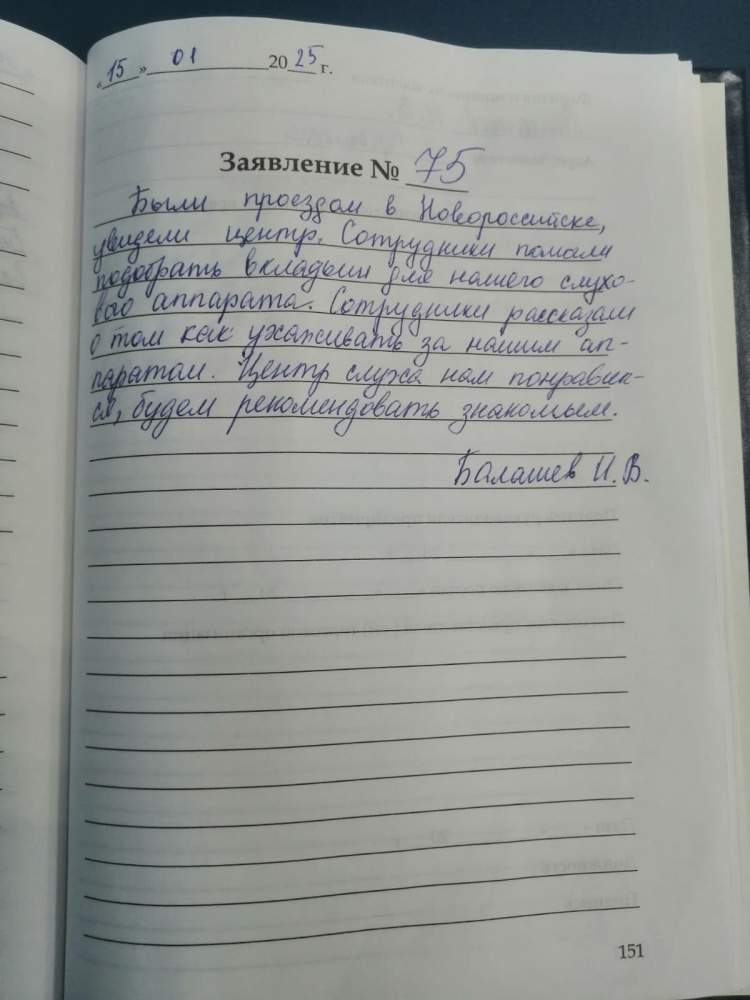 «15» 01 2025 г.
Заявление № 75
Были проездом в Новороссийске,
увидели центр. Сотрудники помогли
подобрать вкладыш для нашего слухо-
вого аппарата. Сотрудники рассказали
о том как ухаживать за нашим ап-
паратом. Центр слуха нам понравил-
ся, будем рекомендовать знакомым.
Балашев И.В.
151